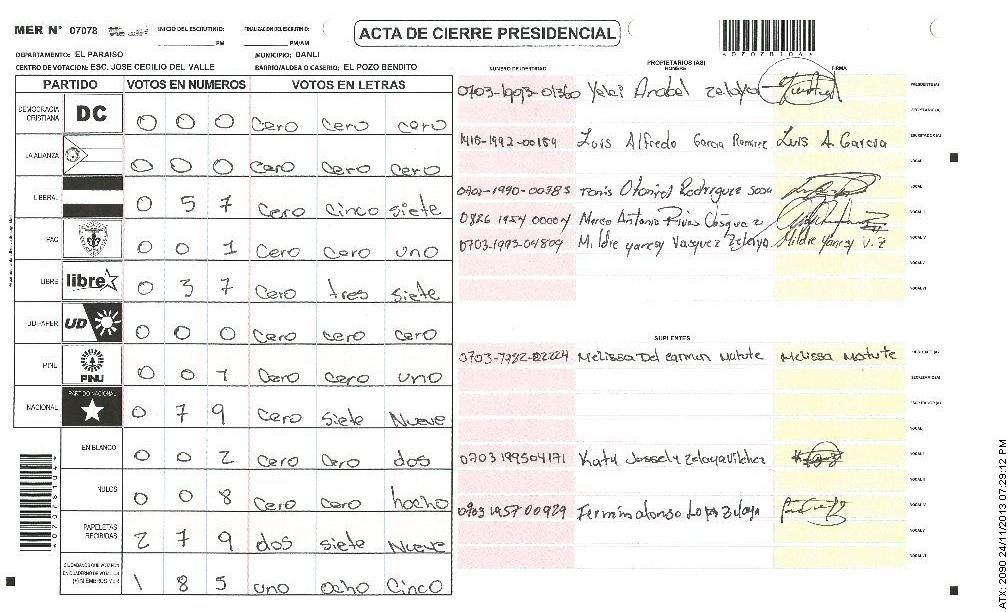 MER N° 07078 INICIO DEL ESCRUTINIO: PM FINALIZACION DEL ESCRUTINIO: PM/AM
ACTA DE CIERRE PRESIDENCIAL
DEPARTAMENTO: EL PARAISO MUNICIPIO: DANLI
CENTRO DE VOTACION: ESC. JOSE CECILIO DEL VALLE BARRIO/ALDEA O CASERIO: EL POZO BENDITO
PARTIDO VOTOS EN NUMEROS VOTOS EN LETRAS
DEMOCRACIA CRISTIANA DC 0 0 0 Cero Cero cero
LA ALIANZA 0 0 0 Cero Cero Cero
LIBERAL 0 5 7 Cero Cinco siete
PAC 0 0 1 Cero Cero uno
LIBRE libre 0 3 7 Cero tres siete
UD-FAPER UD 0 0 0 Cero cero cero
PINU PINU 0 0 1 Cero cero uno
NACIONAL PARTIDO NACIONAL 0 7 9 Cero siete Nueve
EN BLANCO 0 0 2 Cero Cero dos
NULOS 0 0 8 Cero Cero hocho
PAPELETAS RECIBIDAS 2 7 9 dos siete Nueve
CIUDADANOS QUE VOTARON EN CUADERNO DE VOTACION (+) MIEMBROS MER 1 8 5 uno ocho Cinco
NUMERO DE IDENTIDAD PROPIETARIOS (AS) NOMBRE FIRMA
0703-1993-01360 Yelei Anabel Zelaya PRESIDENTE (A)
SECRETARIO (A)
1415-1992-00159 Luis Alfredo Garcia Ramirez Luis A. Garcia ESCRUTADOR (A)
VOCAL I
0701-1990-00385 Tonis Otoniel Rodriguez Sosa
0826 1954 00004 Marco Antonio Rivas Vasquez
0703-1993-04809 Mildre yaresy Vasquez Zelaya Mildre yaresy V.Z
VOCAL VI
SUPLENTES
0703-1982-02224 Melissa Del carmen Matute Melissa Matute
SECRETARIO (A)
ESCRUTADOR (A)
VOCAL I
0703 199504171 Katy Jossely Zelaya Vilchez
0703 1957 00929 Fermin alonso Lopez Zelaya
VOCAL V
VOCAL VI
4070781044
ATX: 2090 24/11/2013 07:29:12 PM